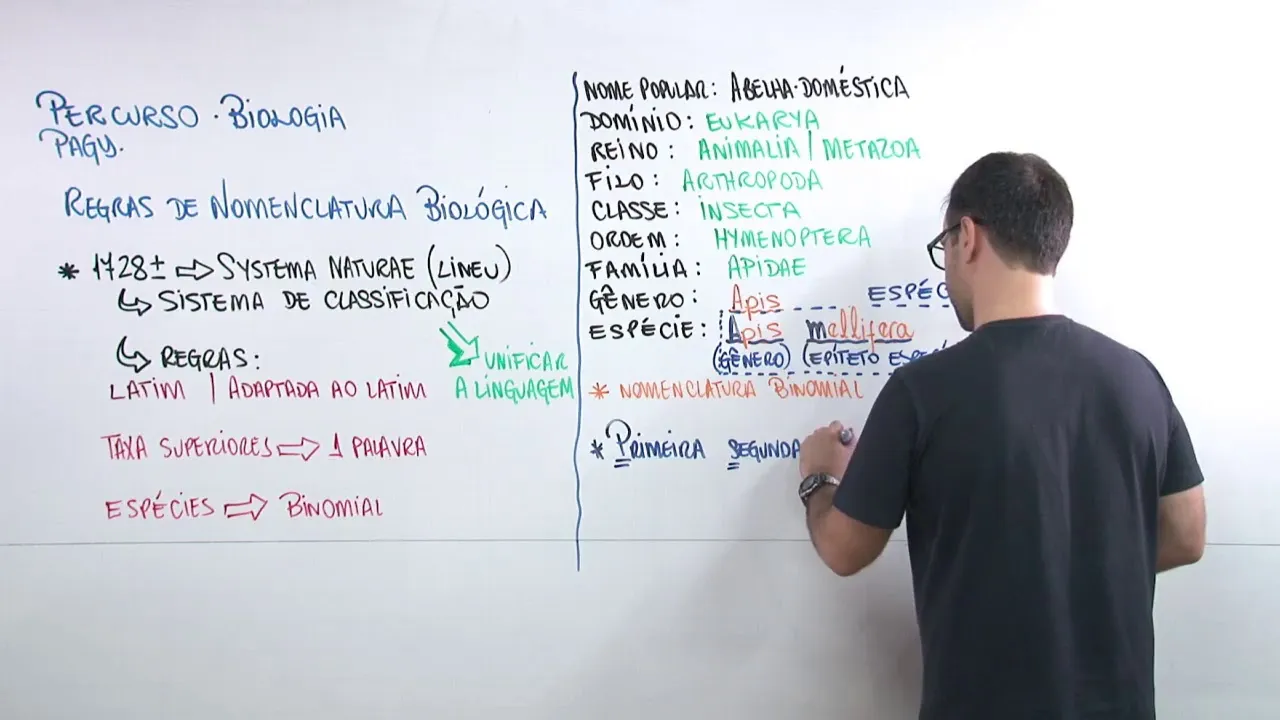 PERCURSO · BIOLOGIA
PAGY.
REGRAS DE NOMENCLATURA BIOLÓGICA
* 1728± ⇨ SYSTEMA NATURAE (LINEU)
↳ SISTEMA DE CLASSIFICAÇÃO
↳ REGRAS:
UNIFICAR
A LINGUAGEM
LATIM / ADAPTADA AO LATIM
TAXA SUPERIORES ⇨ 1 PALAVRA
ESPÉCIES ⇨ BINOMIAL
NOME POPULAR: ABELHA-DOMÉSTICA
DOMÍNIO: EUKARYA
REINO: ANIMALIA / METAZOA
FILO: ARTHROPODA
CLASSE: INSECTA
ORDEM: HYMENOPTERA
FAMÍLIA: APIDAE
GÊNERO: Apis ESPÉC
ESPÉCIE: Apis mellifera
(GÊNERO) (EPÍTETO ESPE
* NOMENCLATURA BINOMIAL
* Primeira segunda